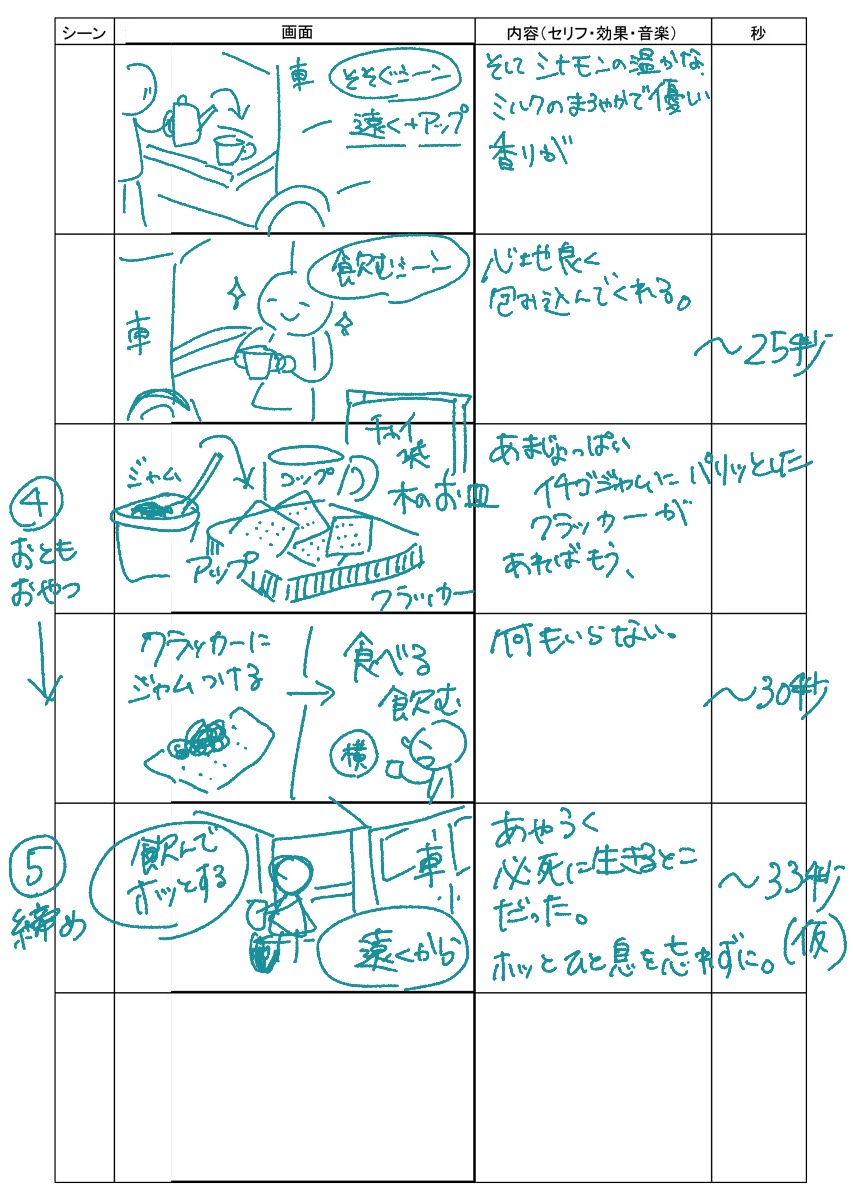 シーン
画面
内容(セリフ・効果・音楽)
秒
車
そそぐシーン
遠く+アップ
そして シナモンの温かな
ミルクのまろやかで優しい
香りが
車
飲むシーン
心地良く
包み込んでくれる。
〜25秒
④
おとも
おやつ
ジャム
コップ
チャイ
木のお皿
アップ
クラッカー
あまじょっぱい
イチゴジャムに パリッとした
クラッカーが
あればもう、
クラッカーに
ジャムつける
食べる
飲む
横
何もいらない。
〜30秒
⑤
締め
飲んで
ホッとする
車
遠くから
あやうく
必死に生きるとこ
だった。
ホッとひと息を忘れずに。
〜33秒
(仮)